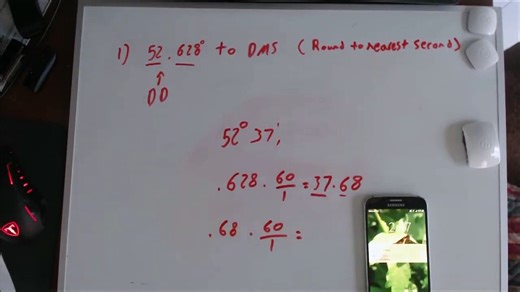 1) 52.628° to DMS (Round to nearest second)
DD
52° 37'
.628 · 60/1 = 37.68
.68 · 60/1 =
SAMSUNG